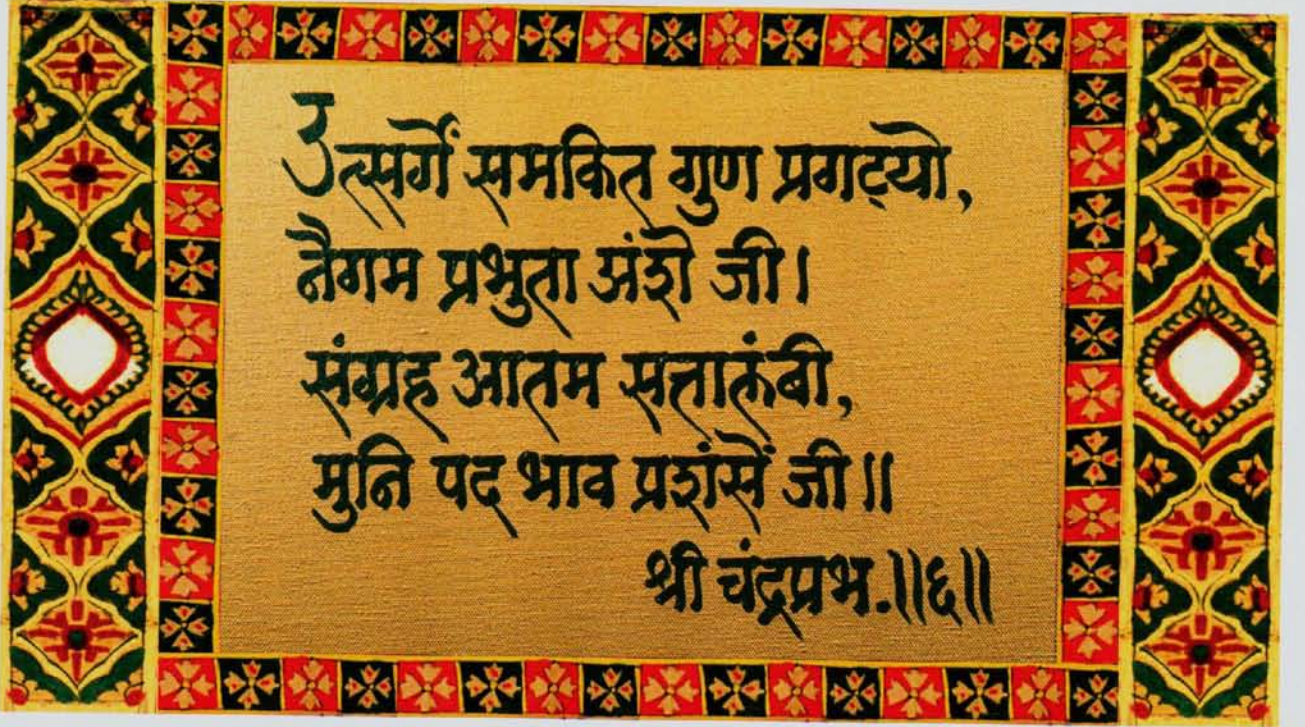 उत्सर्गें समकित गुण प्रगट्यो,
नैगम प्रभुता अंशे जी।
संग्रह आतम सत्तालंबी,
मुनि पद भाव प्रशंसें जी॥
श्री चंद्रप्रभ.॥६॥